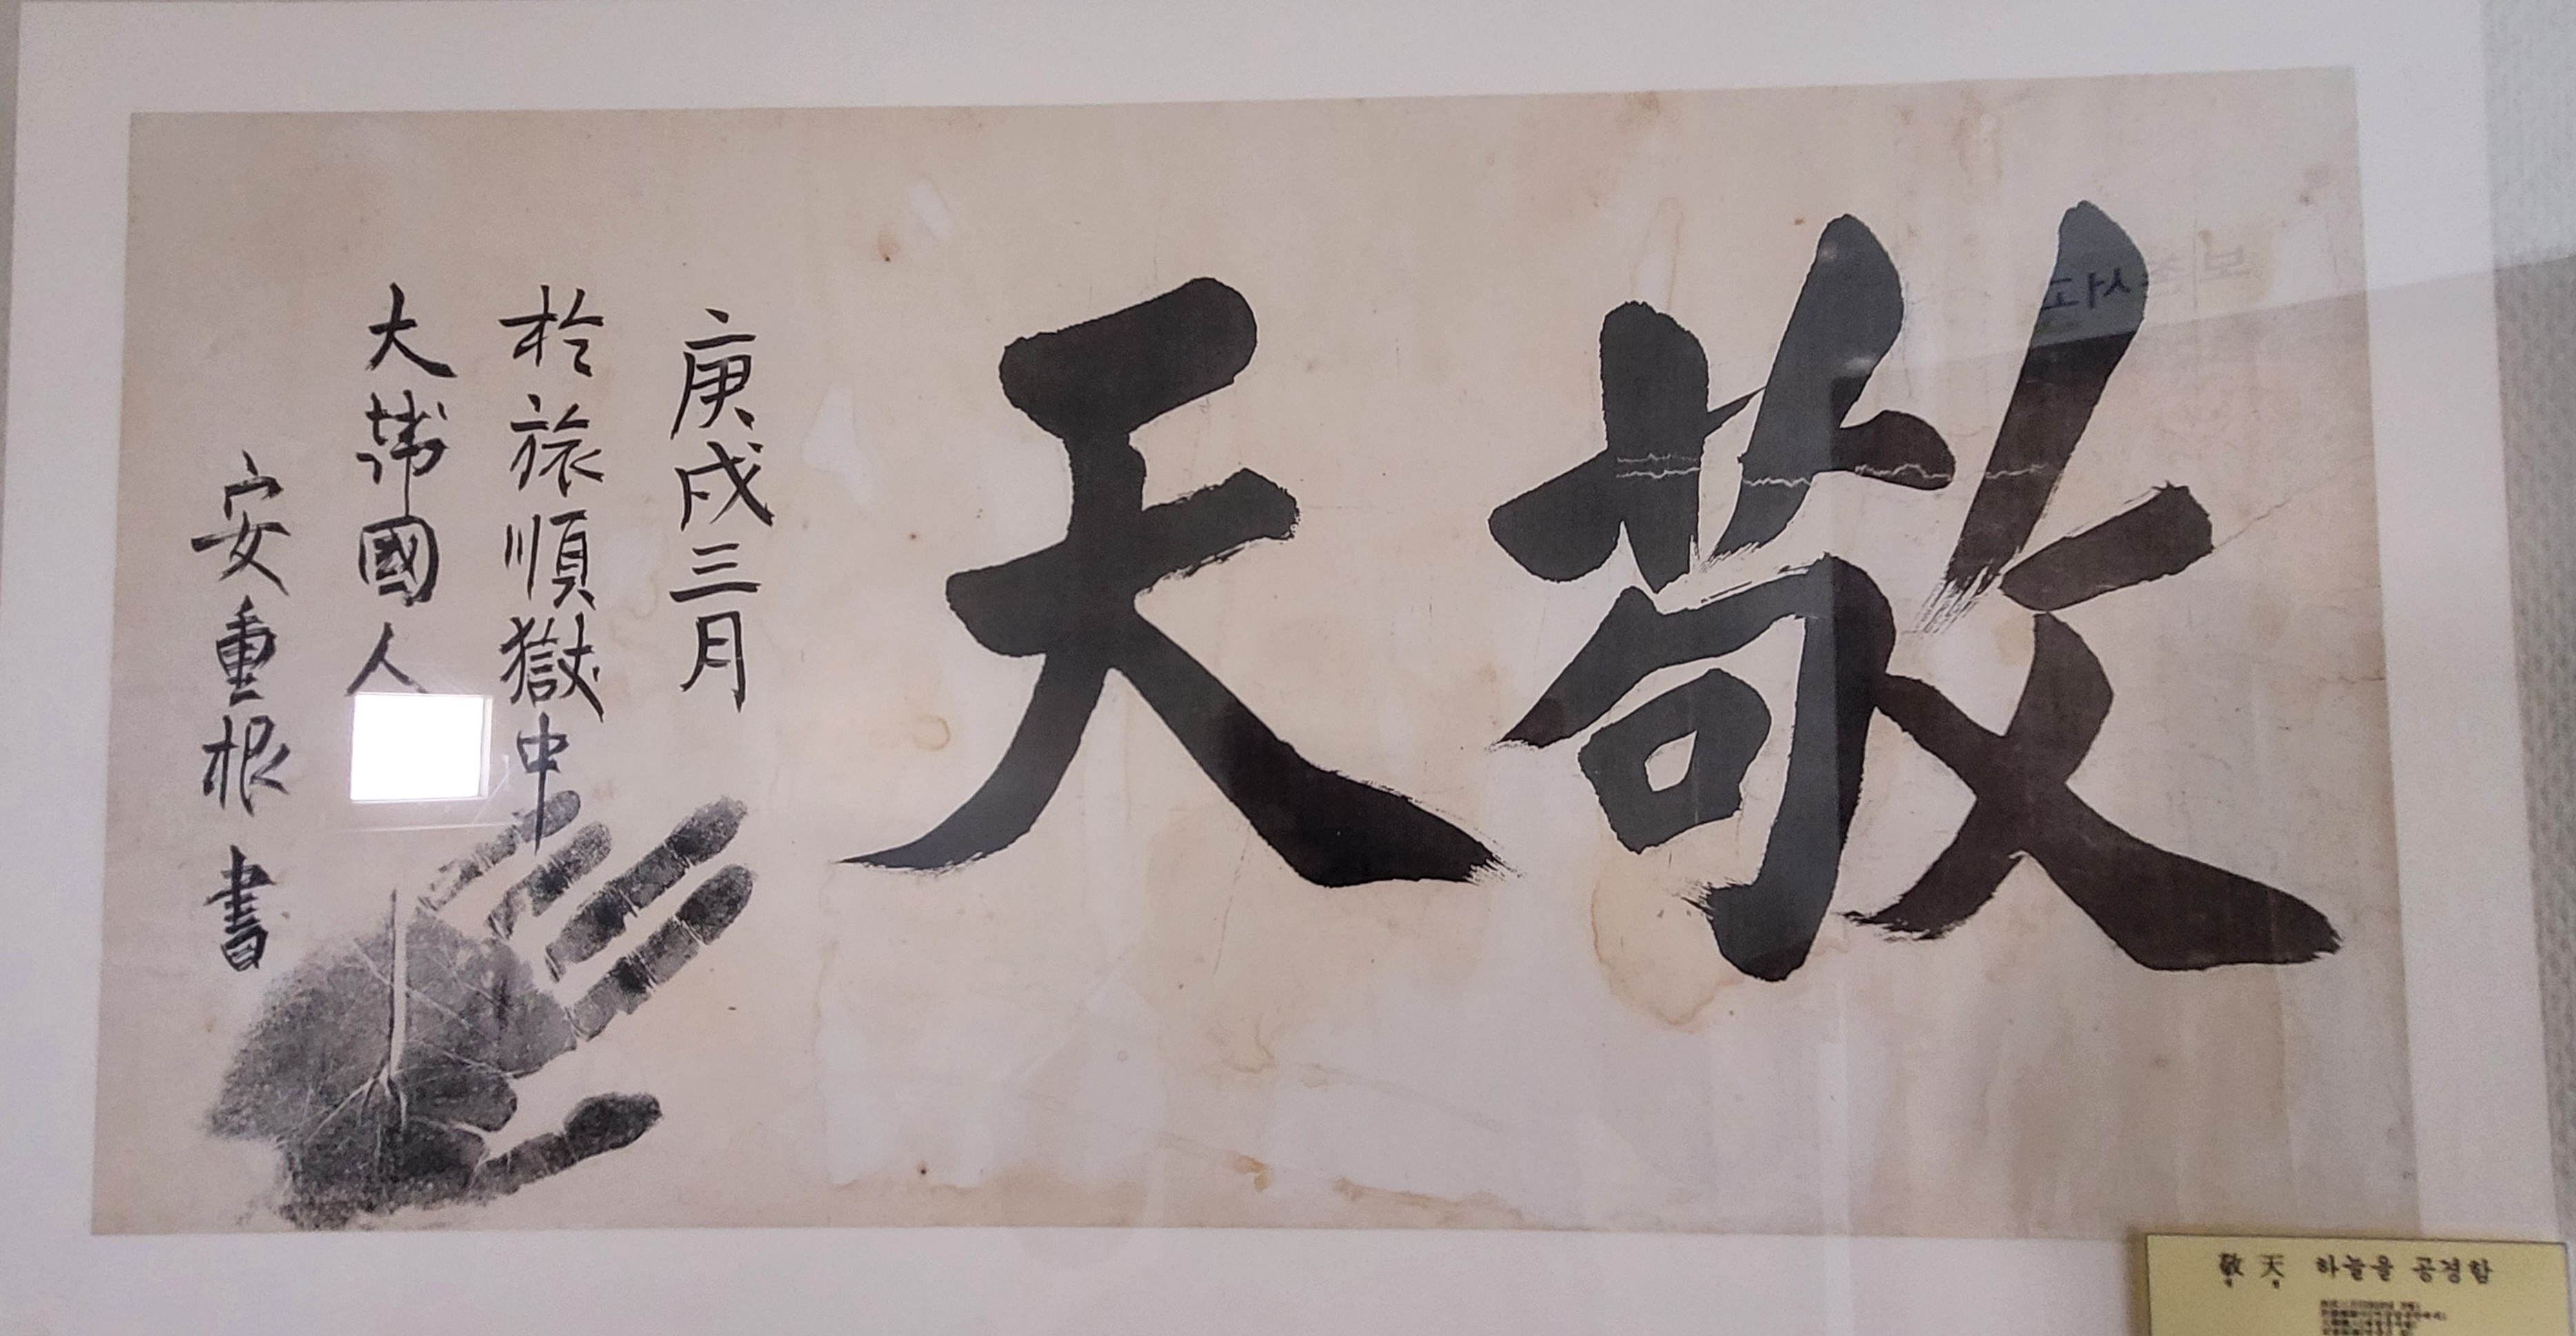 敬天
庚戌三月
於旅順獄中
大韓國人
安重根書
敬天 하늘을 공경함